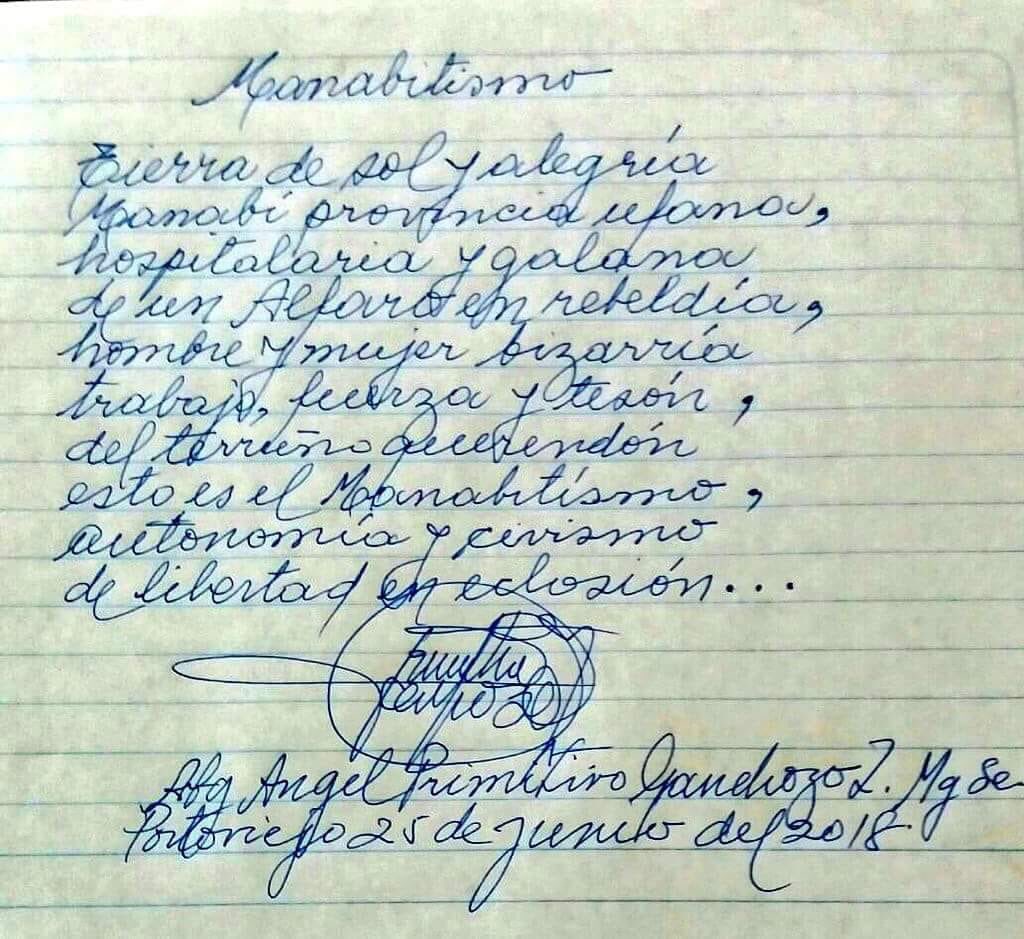 Manabitismo
Tierra de sol y alegría
Manabí provincia ufana,
hospitalaria y galana
de un Alfaro en rebeldía,
hombre y mujer bizarría
trabajo, fuerza y tesón,
del terruño querendón
esto es el Manabitismo,
autonomía y civismo
de libertad en eclosión...
Abg Angel Primitivo Ganchozo Z. Mg Sc
Portoviejo 25 de junio del 2018.